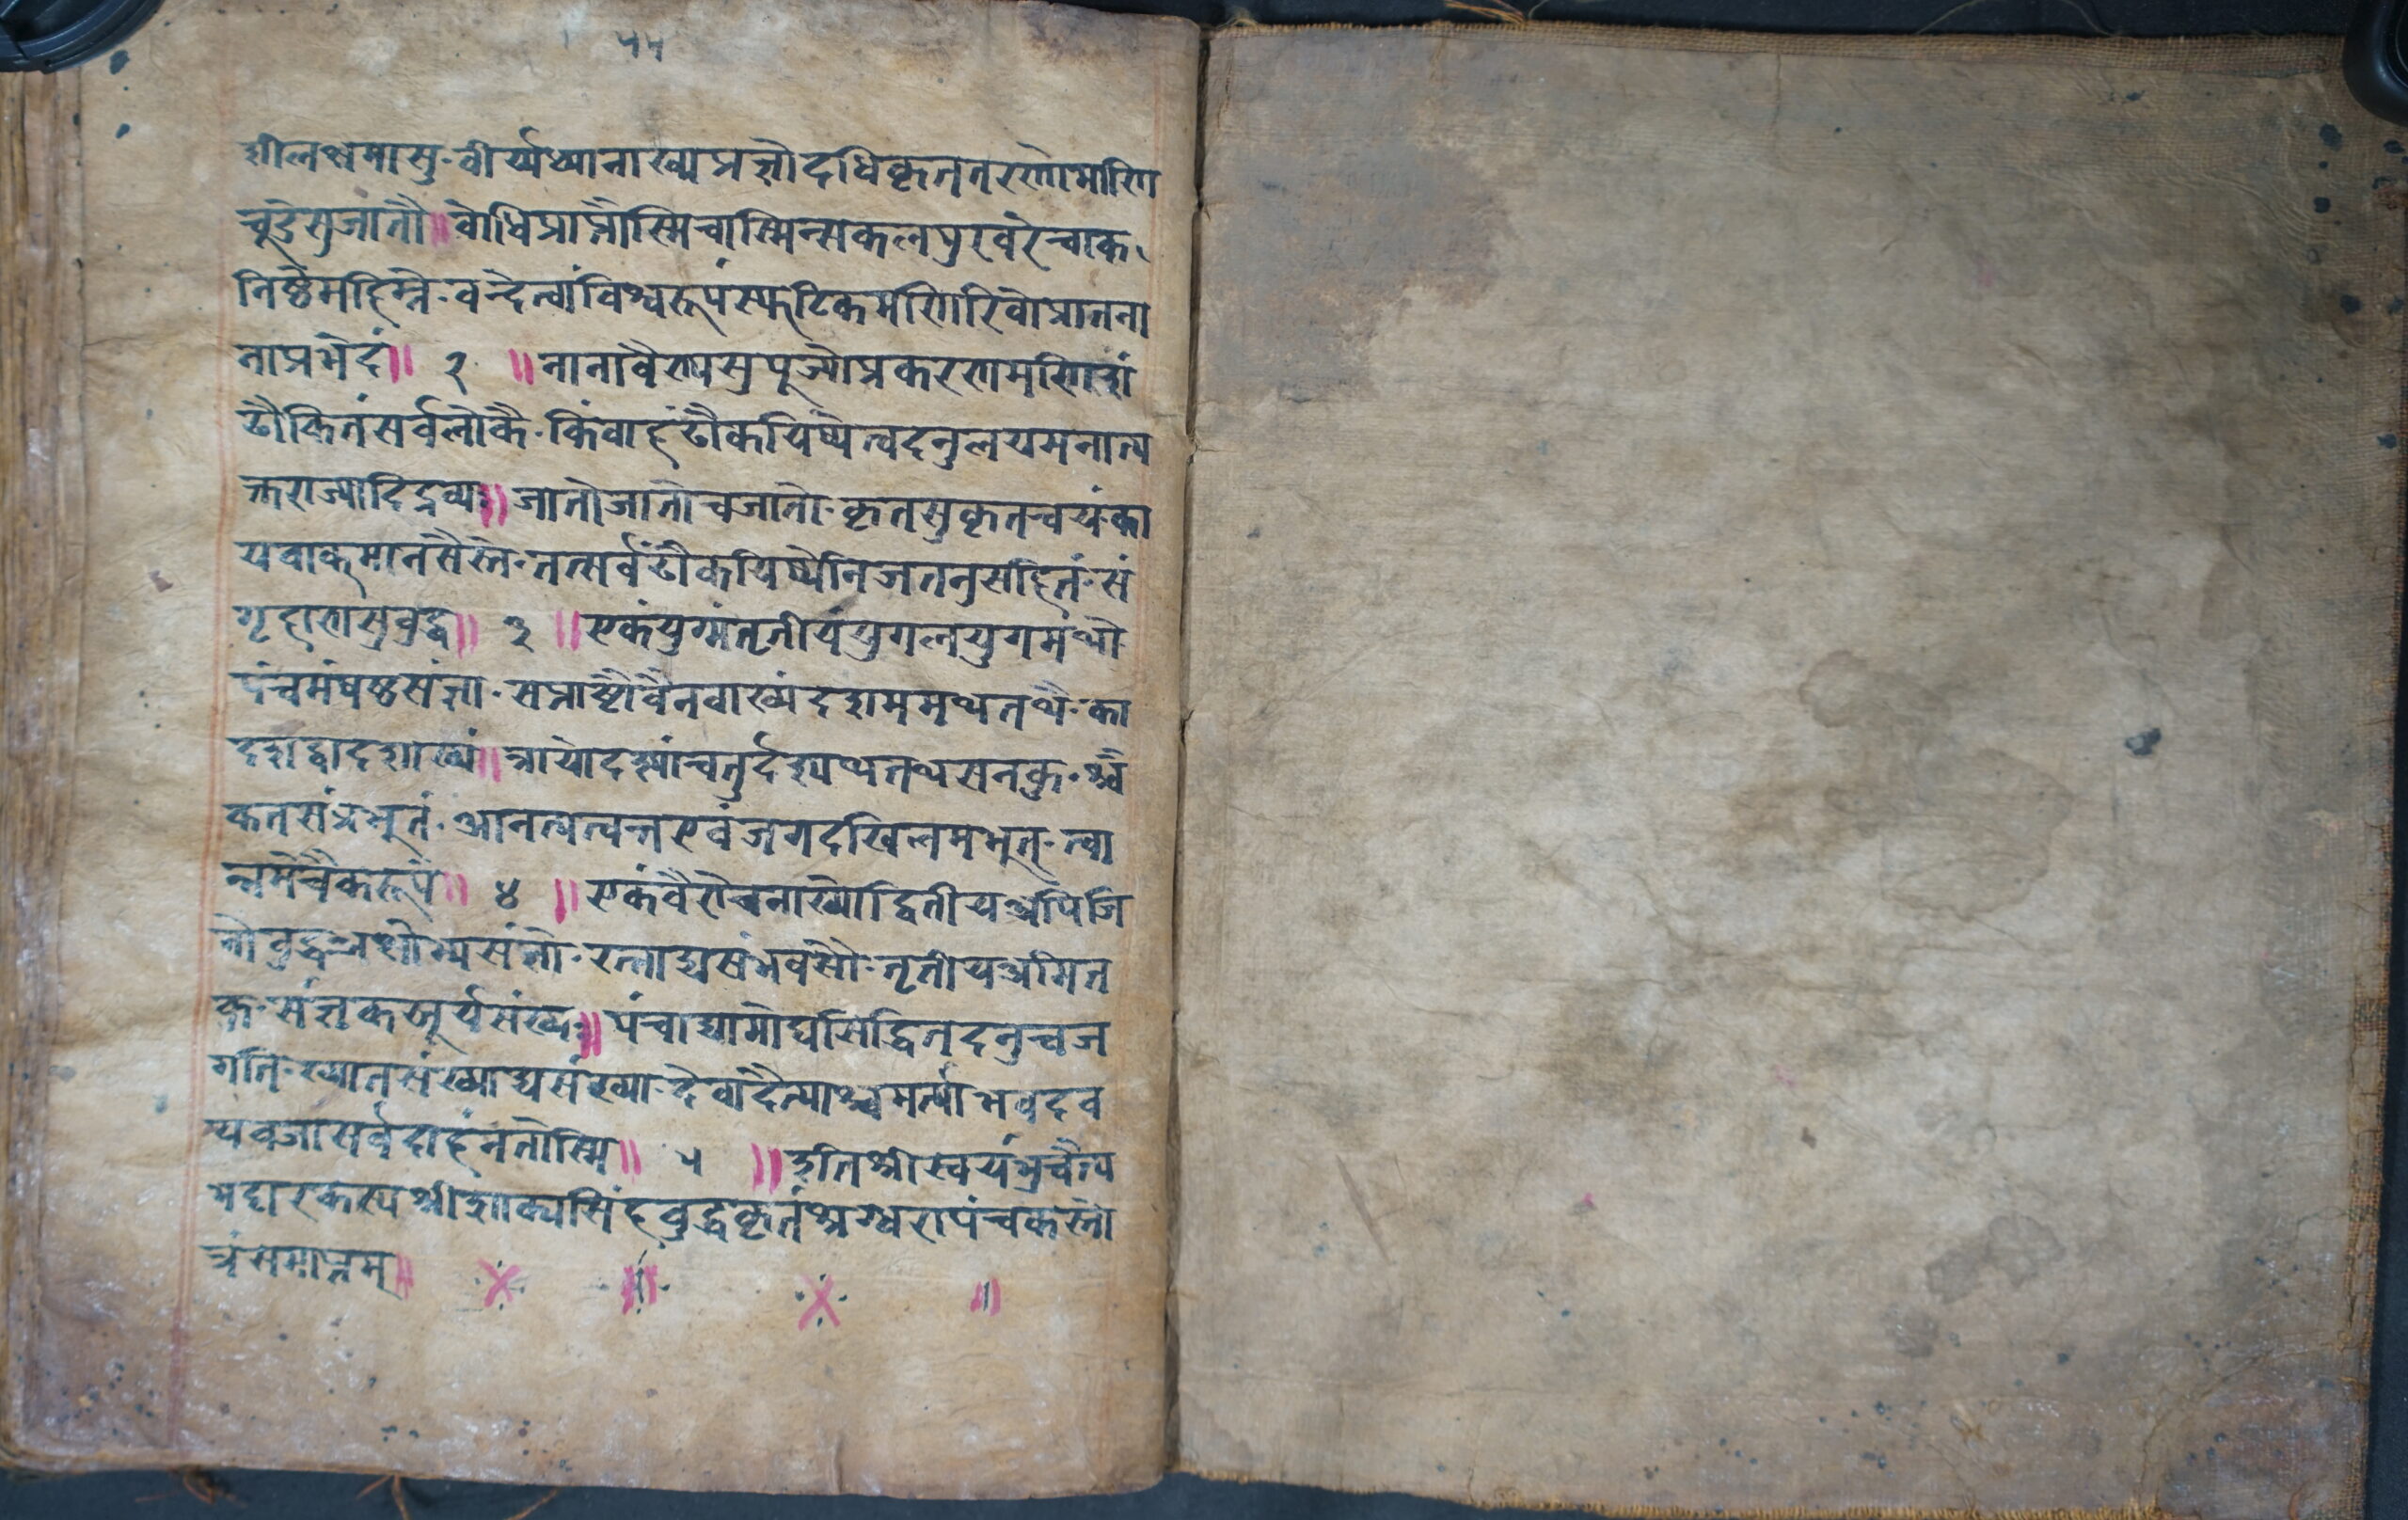 ५५
शीलक्षमासु·वीर्य्यध्यानाख्यप्रज्ञोदधिकृततरणोमाणि
चूडेसुजातौ॥वोधिप्राप्तोस्मिचास्मिन्सकलपुरवरेचाक
निष्ठेमहिम्ने·वन्देत्वांविश्वरूपंस्फटिकमणिरिवोप्रातना
नाप्रभेदं॥ २ ॥नानावैरुप्यसुपूज्योप्रकरणमणिशं
ढौकितंसर्वलोकै·किंवाहंढौकयिष्येत्वदनुलयमनात्य
क्तराज्यादिद्रव्यः॥जातोजातोचजातो·कृतसुकृतचयं·का
यवाक्मानसैस्ते·तत्सर्वंढौकयिष्येनिजतनुसहितं·सं
गृहाणसुवुद्ध॥ ३ ॥एकंयुग्मंतृतीयंयुगलयुगमथो
पंचमंषष्ठसंज्ञा·सप्ताष्टौवैनवाख्यंदशममथतथै·का
दशद्वादशाख्यं॥त्रायोदश्यांचतुर्दश्यथतथसनकु·श्चै
कतसंप्रभूतं·आनत्यत्वन्तएवंजगदखिलमभूत्·त्वा
न्नमेचैकरूपं॥ ४ ॥एकंवैरोचनाख्योद्वितीयअपिजि
नोवुद्धअक्षोभ्यसंज्ञो·रत्नाद्यसंभवसौ·तृतीयअमित
क·संज्ञकअर्यसंख्यः॥पंचाद्यामोघसिद्धितदनुचज
गति·ख्यातसंख्याद्यसंख्या·देवादैत्याश्चमर्त्याभवदव
यवजासर्वदाहंनतोस्मि॥ ५ ॥इतिश्रीस्वयंभुचैत्य
भट्टारकस्यश्रीशाक्यसिंहवुद्धकृतंश्रग्धरापंचकस्तो
त्रंसमाप्तम्॥ ॥ ॥